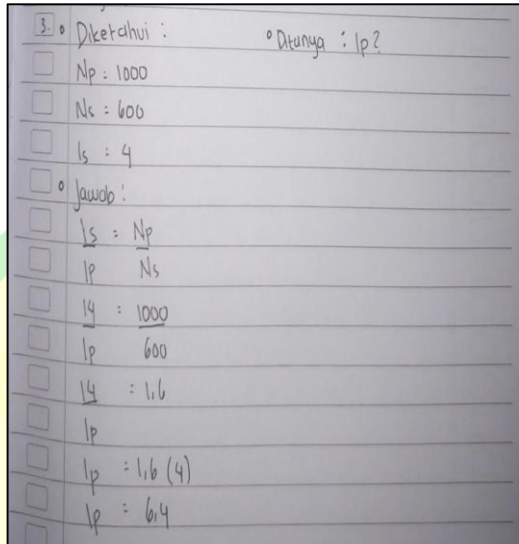 3. • Diketahui : • Ditanya : Ip?
Np : 1000
Ns : 600
Is : 4
• Jawab :
Is : Np
Ip Ns
I4 : 1000
Ip 600
I4 : 1,6
Ip
Ip : 1,6 (4)
Ip : 6,4